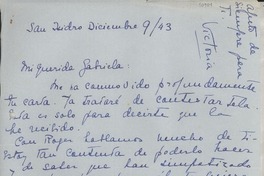 San Isidro Diciembre 9/43
Mi querida Gabriela:
Me ha conmovido profundamente
tu carta. Ya trataré de contestártela.
Esta es solo para decirte que la
he recibido.
Con Roger hablamos mucho de ti
Estoy tan contenta de poderlo hacer
y de saber que han simpatizado
siempre para
Ti
Victoria